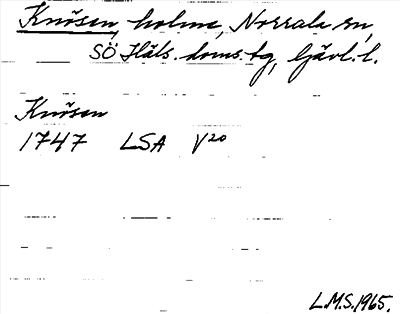 Knösen, holme, Norrala sn,
SÖ Häls. doms.tg, Gävl. l.
Knösen
1747 LSA V20
L.M.S. 1965.